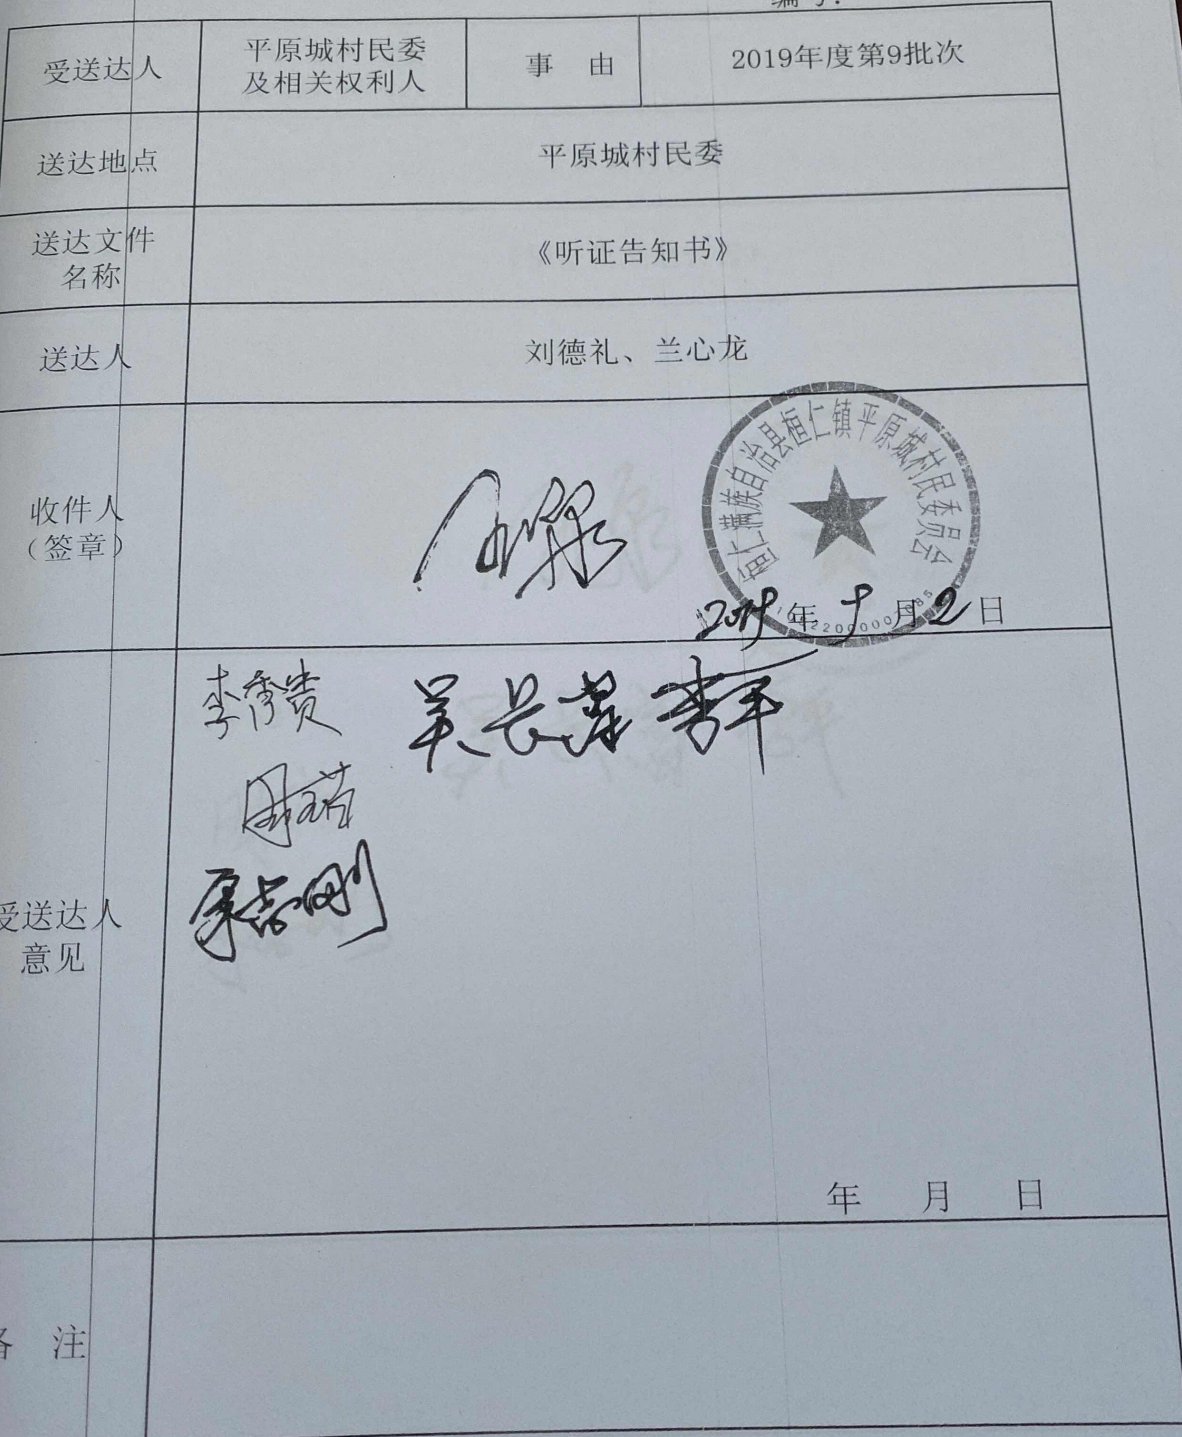 编号:
受送达人
平原城村民委
及相关权利人
事 由
2019年度第9批次
送达地点
平原城村民委
送达文件
名称
《听证告知书》
送达人
刘德礼、兰心龙
收件人
(签章)
桓仁满族自治县桓仁镇平原城村民委员会
2019年9月2日
李秀贵
受送达人
意见
年 月 日
备 注